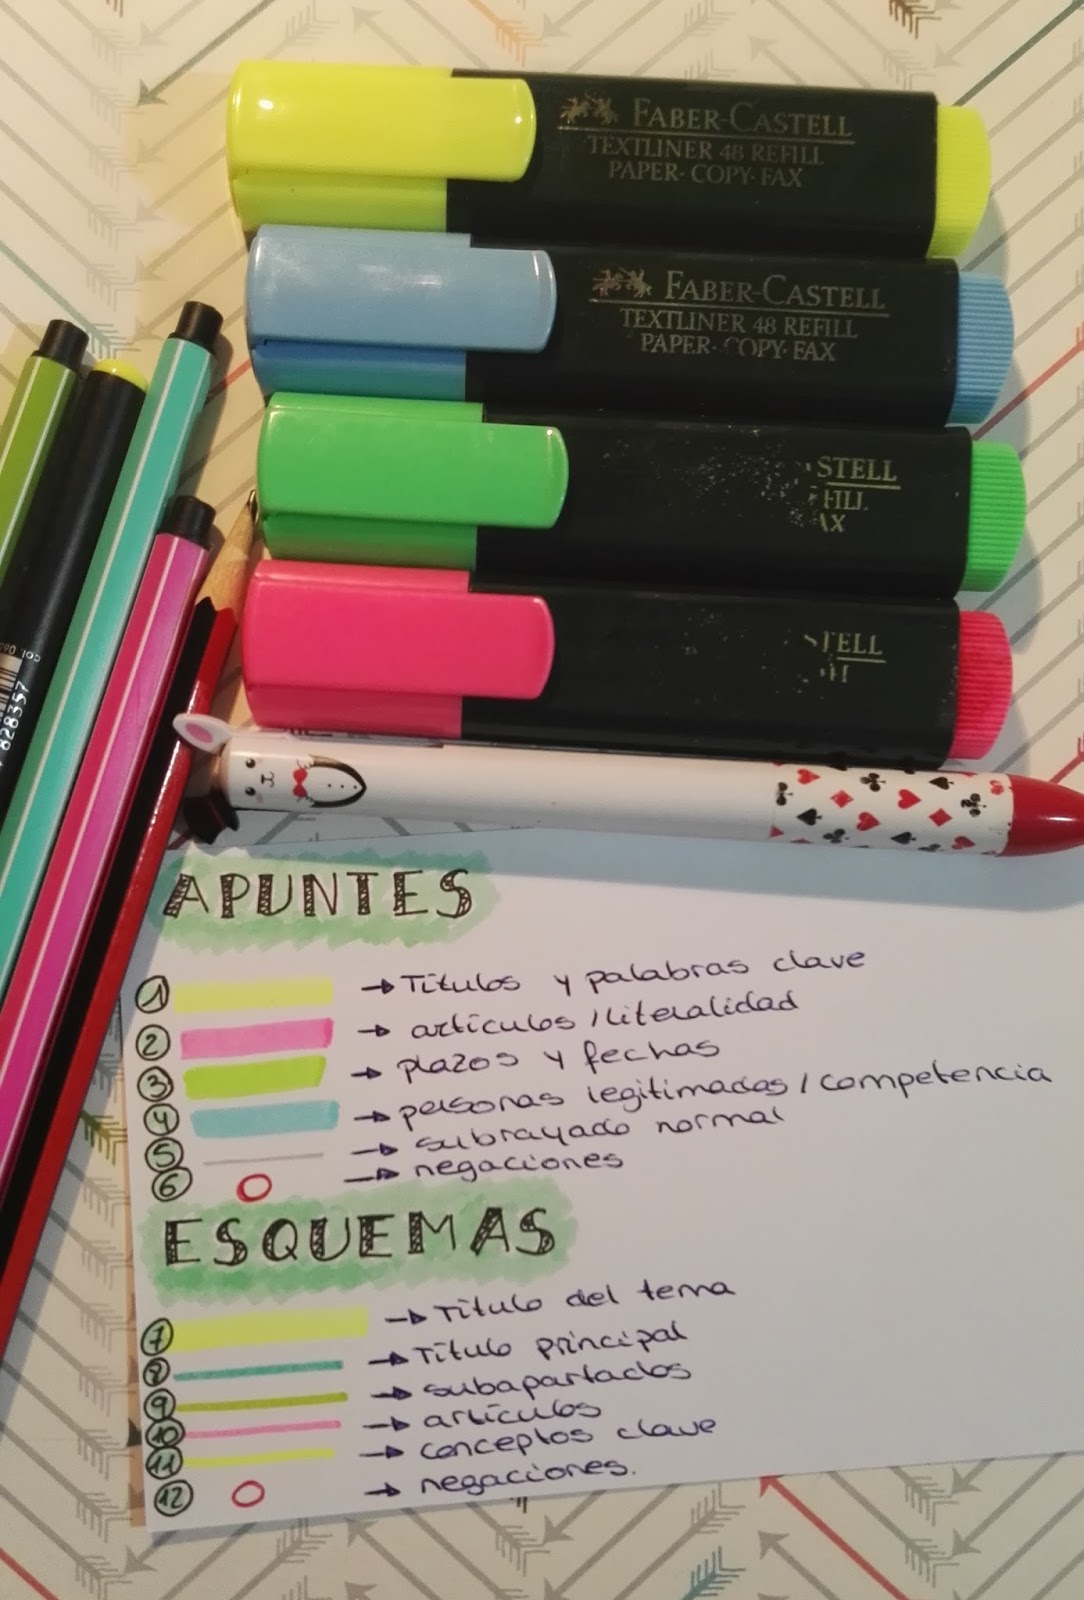 FABER-CASTELL
TEXTLINER 48 REFILL
PAPER·COPY·FAX
FABER-CASTELL
TEXTLINER 48 REFILL
PAPER·COPY·FAX
STELL
FILL
AX
TELL
828357
APUNTES
1 → Títulos y palabras clave
2 → artículos / literalidad
3 → plazos y fechas
4 → personas legitimadas / competencia
5 → subrayado normal
6 → negaciones
ESQUEMAS
7 → Título del tema
8 → Título principal
9 → subapartados
10 → artículos
11 → conceptos clave
12 → negaciones.